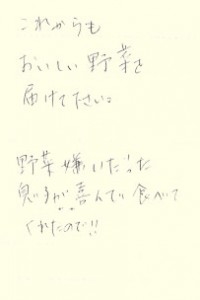 これからも
おいしい野菜を
届けて下さい。
野菜嫌いだった
息子が喜んで食べて
くれたので!!